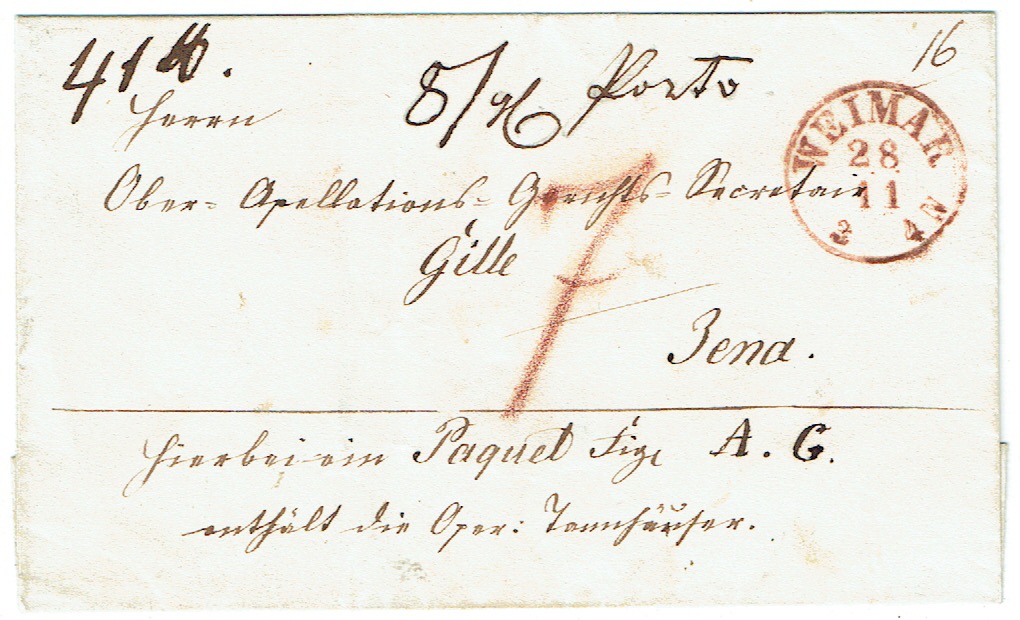 16
8/ Porto
Herrn
WEIMAR
28
11
3 4 N
Ober= Apellations= Gerichts= Secretair
Gille
7
Jena.
hierbei ein Paquet Sig. A. G.
enthält die Oper: Tannhäuser.